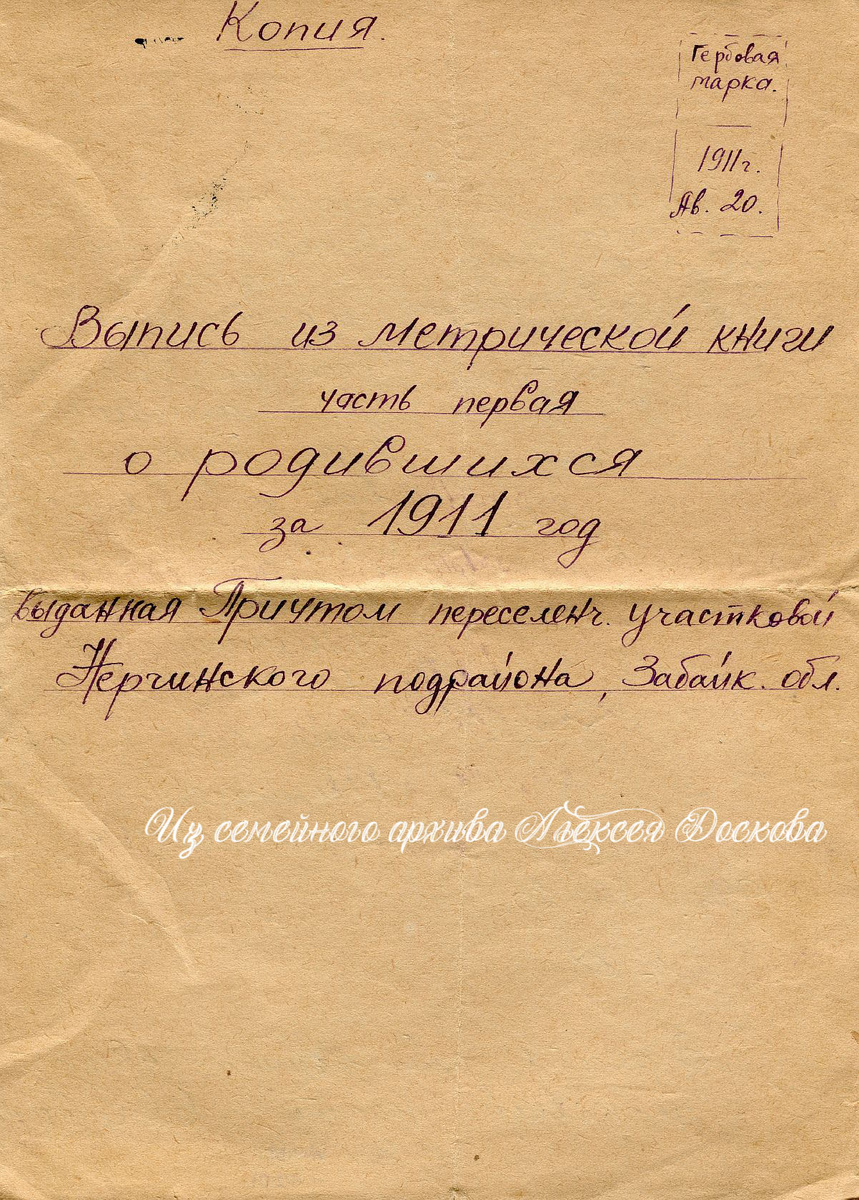 Копия.
Гербовая
марка.
1911 г.
Ав. 20.
Выпись из метрической книги
часть первая
о родившихся
за 1911 год
выданная Причтом переселенч. участковой
Нерчинского подрайона, Забайк. обл.
Из семейного архива Алексея Доскова